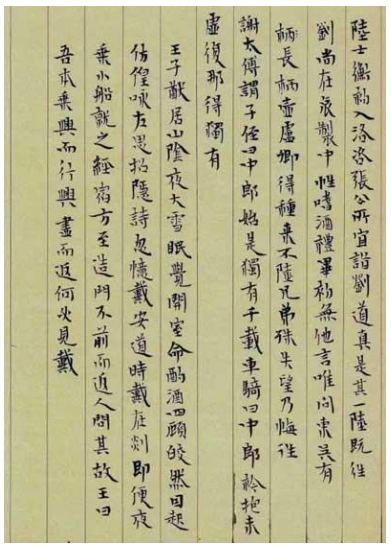 陸士衡初入洛咨張公所宜詣劉道真是其一陸既往
劉尚在哀製中性嗜酒禮畢初無他言唯問東吳有
柄長柄壺盧卿得種來不陸兄弟殊失望乃悔往
謝太傅謂子侄曰中郎始是獨有千載車騎曰中郎衿抱未
虛復那得獨有
王子猷居山陰夜大雪眠覺開室命酌酒四顧皎然因起
仿偟咏左思招隱詩忽憶戴安道時戴在剡即便夜
乘小船就之經宿方至造門不前而返人問其故王曰
吾本乘興而行興盡而返何必見戴